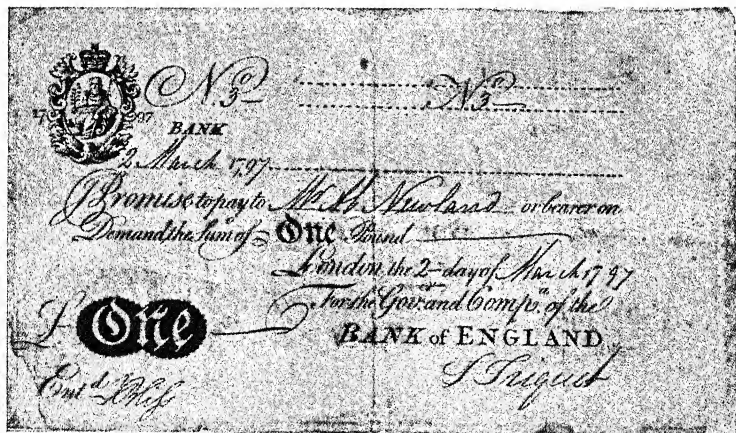 No. 3 No. 3
17 97
BANK
2 March 1797
I Promise to pay to Mr. Ab. Newland or bearer on
Demand, the Sum of One Pound
London, the 2 day of March 1797
For the Gov.r and Comp.a of the
BANK of ENGLAND
£ One
Ent.d